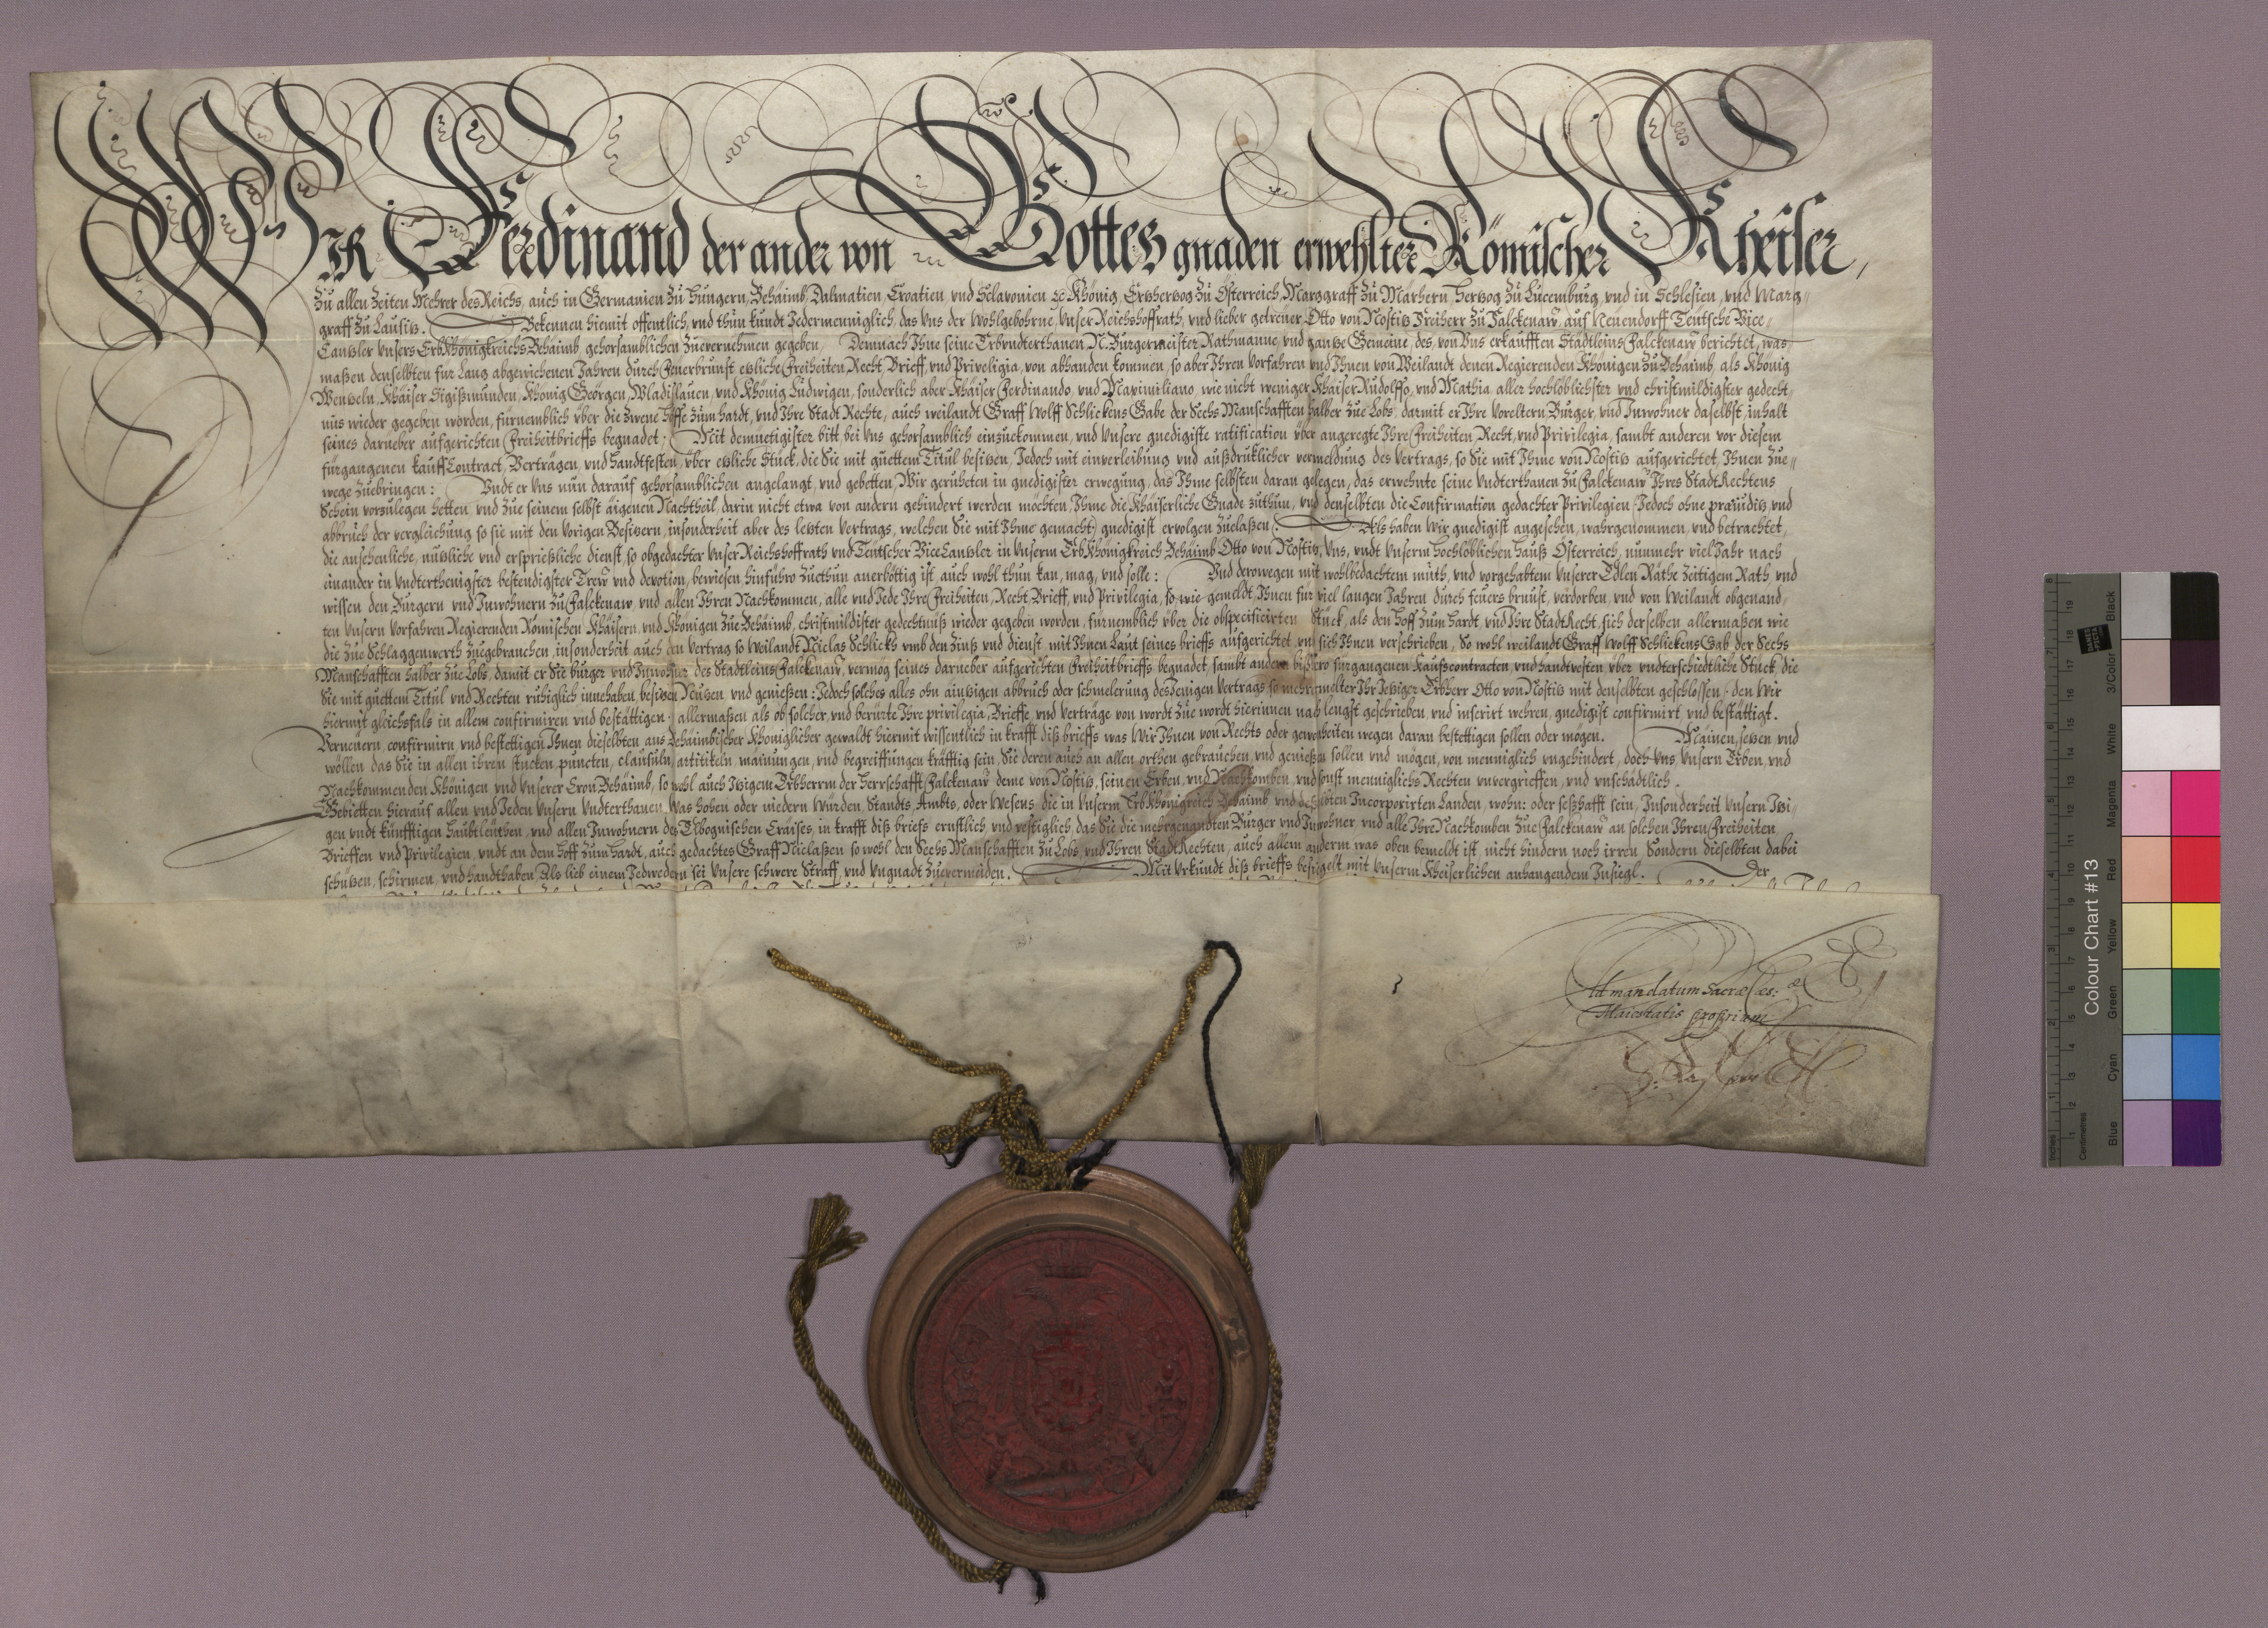 WIR Ferdinand der ander von Gottes gnaden erwehlter Römischer Kheiser,
Zu allen Zeiten Mehrer des Reichs, auch in Germanien zu Hungern, Behäimb, Dalmatien, Croatien, vnd Sclavonien ec Khönig, Ertzhertzog zu Österreich, Marggraff zu Märhern, Hertzog zu Lucemburg, vnd in Schlesien, vnd Marg-
graff zu Lausitz. Bekennen hiemit offentlich, vnd thun kundt Jedermenniglich, das Uns der Wohlgebohrne, Unser Reichshoffrath, vnd lieber getrewer Otto von Nostitz Freiherr zu Falckenaw, auf Neuendorff Teutsche Vice-
Cantzler unsers Erbkhönigkreichs Behäimb, gehorsamblichen zuevernehmen gegeben, Demnach Ihne seine Erbundterthanen, N. Burgermeister Rathmanne, vnd gantze Gemeine, des von Uns erkaufften Stadtleins Falckenaw berichtet, was
maßen denselbten fur Lang abgewichenen Jahren durch Feuerbrunst etzliche Freiheiten, Recht, Brieff, vnd Priveligia, von abhanden kommen, so aber Ihren Vorfahren vnd Ihnen von Weilandt denen Regierenden Khönigen zu Behäimb, als Khönig
Wentzeln, Khäiser Sigißmunden, Khönig Geörgen, Wladislauen, vnd Khönig Ludwigen, sonderlich aber Khäiser Ferdinando, vnd Maximiliano, wie nicht weniger Khäiser Rudolffo, vnd Mathia aller hochlöblichster vnd christmildigster gedecht-
nus wieder gegeben worden, fürnemblich vber die zwene Höffe zum hardt, vnd Ihre Stadt Rechte, auch weilandt Graff Wolff Schlickens Gabe der Sechs Manschafften halber zue Lobs, darmit er Ihre Voreltern Burger, vnd Inwohner daselbst, inhalt
seines darneber aufgerichten Freiheitbrieffs begnadet; Mit demuetigister bitt bei Uns gehorsamblich einzukommen, vnd Unsere gnedigiste ratification vber angeregte Ihre Freiheiten, Recht, vnd Privilegia, sambt anderen vor diesem
fürgangenen kauff Contract, Verträgen, vnd handtfesten, vber etzliche Stuck, die Sie mit guettem Titul besitzen, Jedoch mit einverleibung vnd außdruklicher vermeldung des Vertrags, so Sie mit Ihme von Nostitz aufgerichtet, Ihnen zue-
wege zuebringen: Undt er Uns nun darauf gehorsamblichen angelangt, vnd gebetten, Wir geruheten in gnedigister erwegung, das Ihme selbsten daran gelegen, das erwehnte seine Undterthanen zu Falckenaw Ihres Stadt Rechtens
Schein vorzulegen hetten, vnd zue seinem selbst äigenen Nachtheil, darin nicht etwa von andern gehindert werden möchten, Ihme die Khäiserliche Gnade zuthun, vnd denselbten die Confirmation gedachter Privilegien (Jedoch ohne præiuditz vnd
abbruch der vergleichung so sie mit den vorigen Besitzern, insonderheit aber des letzten Vertrags, welchen Sie mit Ihme gemacht) gnedigist ervolgen zuelaßen. Als haben Wir gnedigist angesehen, wahrgenommen, vnd betrachtet,
die ansehenliche, nützliche vnd ersprießliche dienst, so obgedachter Unser Reichshoffrath vnd Teutscher Vice Cantzler in Unserm Erb Khönigkreich Behäimb Otto von Nostitz, Uns, vndt Unserm hochlöblichen hauß Österreich, nunmehr viel Jahr nach
einander in vndterthenigster bestendigster Trew vnd devotion, bewiesen hinführo zuethun anerböttig ist, auch wohl thun kan, mag, vnd solle: Vnd derowegen mit wohlbedachtem muth, vnd vorgehabtem Unserer Edlen Räthe zeitigem Rath, vnd
wissen den Burgern vnd Inwohnern zu Falckenaw, vnd allen Ihren Nachkommen, alle vnd Jede Ihre Freiheiten, Recht, Brieff, vnd Privilegia, so wie gemeldt, Ihnen für viel langen Jahren durch feuers brunst, verdorben, vnd von Weilandt obgenand-
ten Unsern Vorfahren Regierenden Römischen Khäisern, vnd Khönigen zue Behäimb, christmildister gedechtnuß wieder gegeben worden, fürnemblich vber die obspecificirten Stuck, als den hoff zum hardt, vnd Ihre Stadt Recht, sich derselben allermaßen wie
die zue Schlaggenwerth zuegebrauchen, insonderheit auch den Vertrag so Weilandt Niclas Schlickh vmb den Zinß vnd dienst mit Ihnen Laut seines brieffs aufgerichtet vnd sich Ihnen verschrieben, So wohl weilandt Graff Wolff Schlickens Gab der Sechs
Manschafften halber zue Lobs, damit er Sie burger vnd Inwohner des Stadtleins Falckenaw, vermög seines darneber aufgerichten Freiheitbrieffs begnadet, sambt andern bißhero furgangenen Kauffscontracten, vnd handtvesten vber vndterschiedtliche Stuck, die
Sie mit guettem Titul vnd Rechten rühiglich innehaben besitzen Neutzen vnd genießen: Jedoch solches alles ohn ainigen abbruch oder schmelerung des Jenigen Vertrags so mehrermelter Ihr Jetziger Erbherr Otto von Nostitz mit denselbten geschlossen, den Wir
hiermit gleichsfals in allem confirmiren vnd bestättigen, allermaßen als ob solcher, vnd berürte Ihre privilegia, Brieffe, vnd Verträge von wordt zue wordt hierinnen nach lengst geschrieben, vnd inserirt wehren, gnedigist confirmirt, vnd bestättigt.
Verneuern, confirmirn, vnd bestettigen Ihnen dieselbten aus Behäimbischer Khöniglicher gewaldt hiermit wissentlich in krafft diß brieffs was Wir Ihnen von Rechts oder gewonheiten wegen daran bestettigen sollen oder mögen. Mainen, setzen, vnd
wöllen das Sie in allen ihren stucken, puncten, clausuln, artitikeln, mainungen, vnd begreiffungen kräfftig sein, Sie deren auch an allen orthen gebrauchen, vnd genießen sollen vnd mögen, von menniglich vngehindert, doch Uns, Unsern Erben, vnd
Nachkommenden Khönigen, vnd Unserer Cron Behäimb, so wohl auch Itzigem Erbherrm der herrschafft Falckenaw deme von Nostitz, seinen Erben, vnd Nachkomben, vnd sonst menniglichs Rechten vnvergrieffen, vnd vnschädtlich.
Gebietten hierauf allen vnd Jeden Unsern Vndterthanen, Was hohen oder niedern Wurden, Standts, Ambts, oder Wesens, die in Unserm Erb Khönigreich Behäimb vnd deßelbten Incorporirten Landen, wohn: oder seßhafft sein, Insonderheit Unsern Itzi-
gen vndt künfftigen haubtleuthen, vnd allen Inwohnern des Elbognischen Craises, in krafft diß briefs ernstlich, vnd vestiglich, das Sie die mehrgenandten Burger vnd Inwohner, vnd alle Ihre Nachkomben zue Falckenaw an solchen Ihren Freiheiten,
Brieffen vnd Privilegien, vndt an dem hoff zum hardt, auch gedachtes Graff Niclaßen so wohl den Sechs Manschafften zu Lobs, vnd Ihren Stadt Rechten, auch allem anderm was oben bemeldt ist, nicht hindern noch irren, Sondern dieselbten dabei
schutzen, schirmen, vnd handthaben, Als lieb einem Jedwedern sei Unsere schwere Straff, vnd Ungnadt zuevermeiden. Mit Urkundt diß brieffs besigelt mit Unserm Kheiserlichen anhangendem Insiegl. Der
Ad mandatum Sacræ Cæs: æ
Maiestatis proprium
Colour Chart #13
Blue Cyan Green Yellow Red Magenta White 3/Color Black
Inches
Centimetres